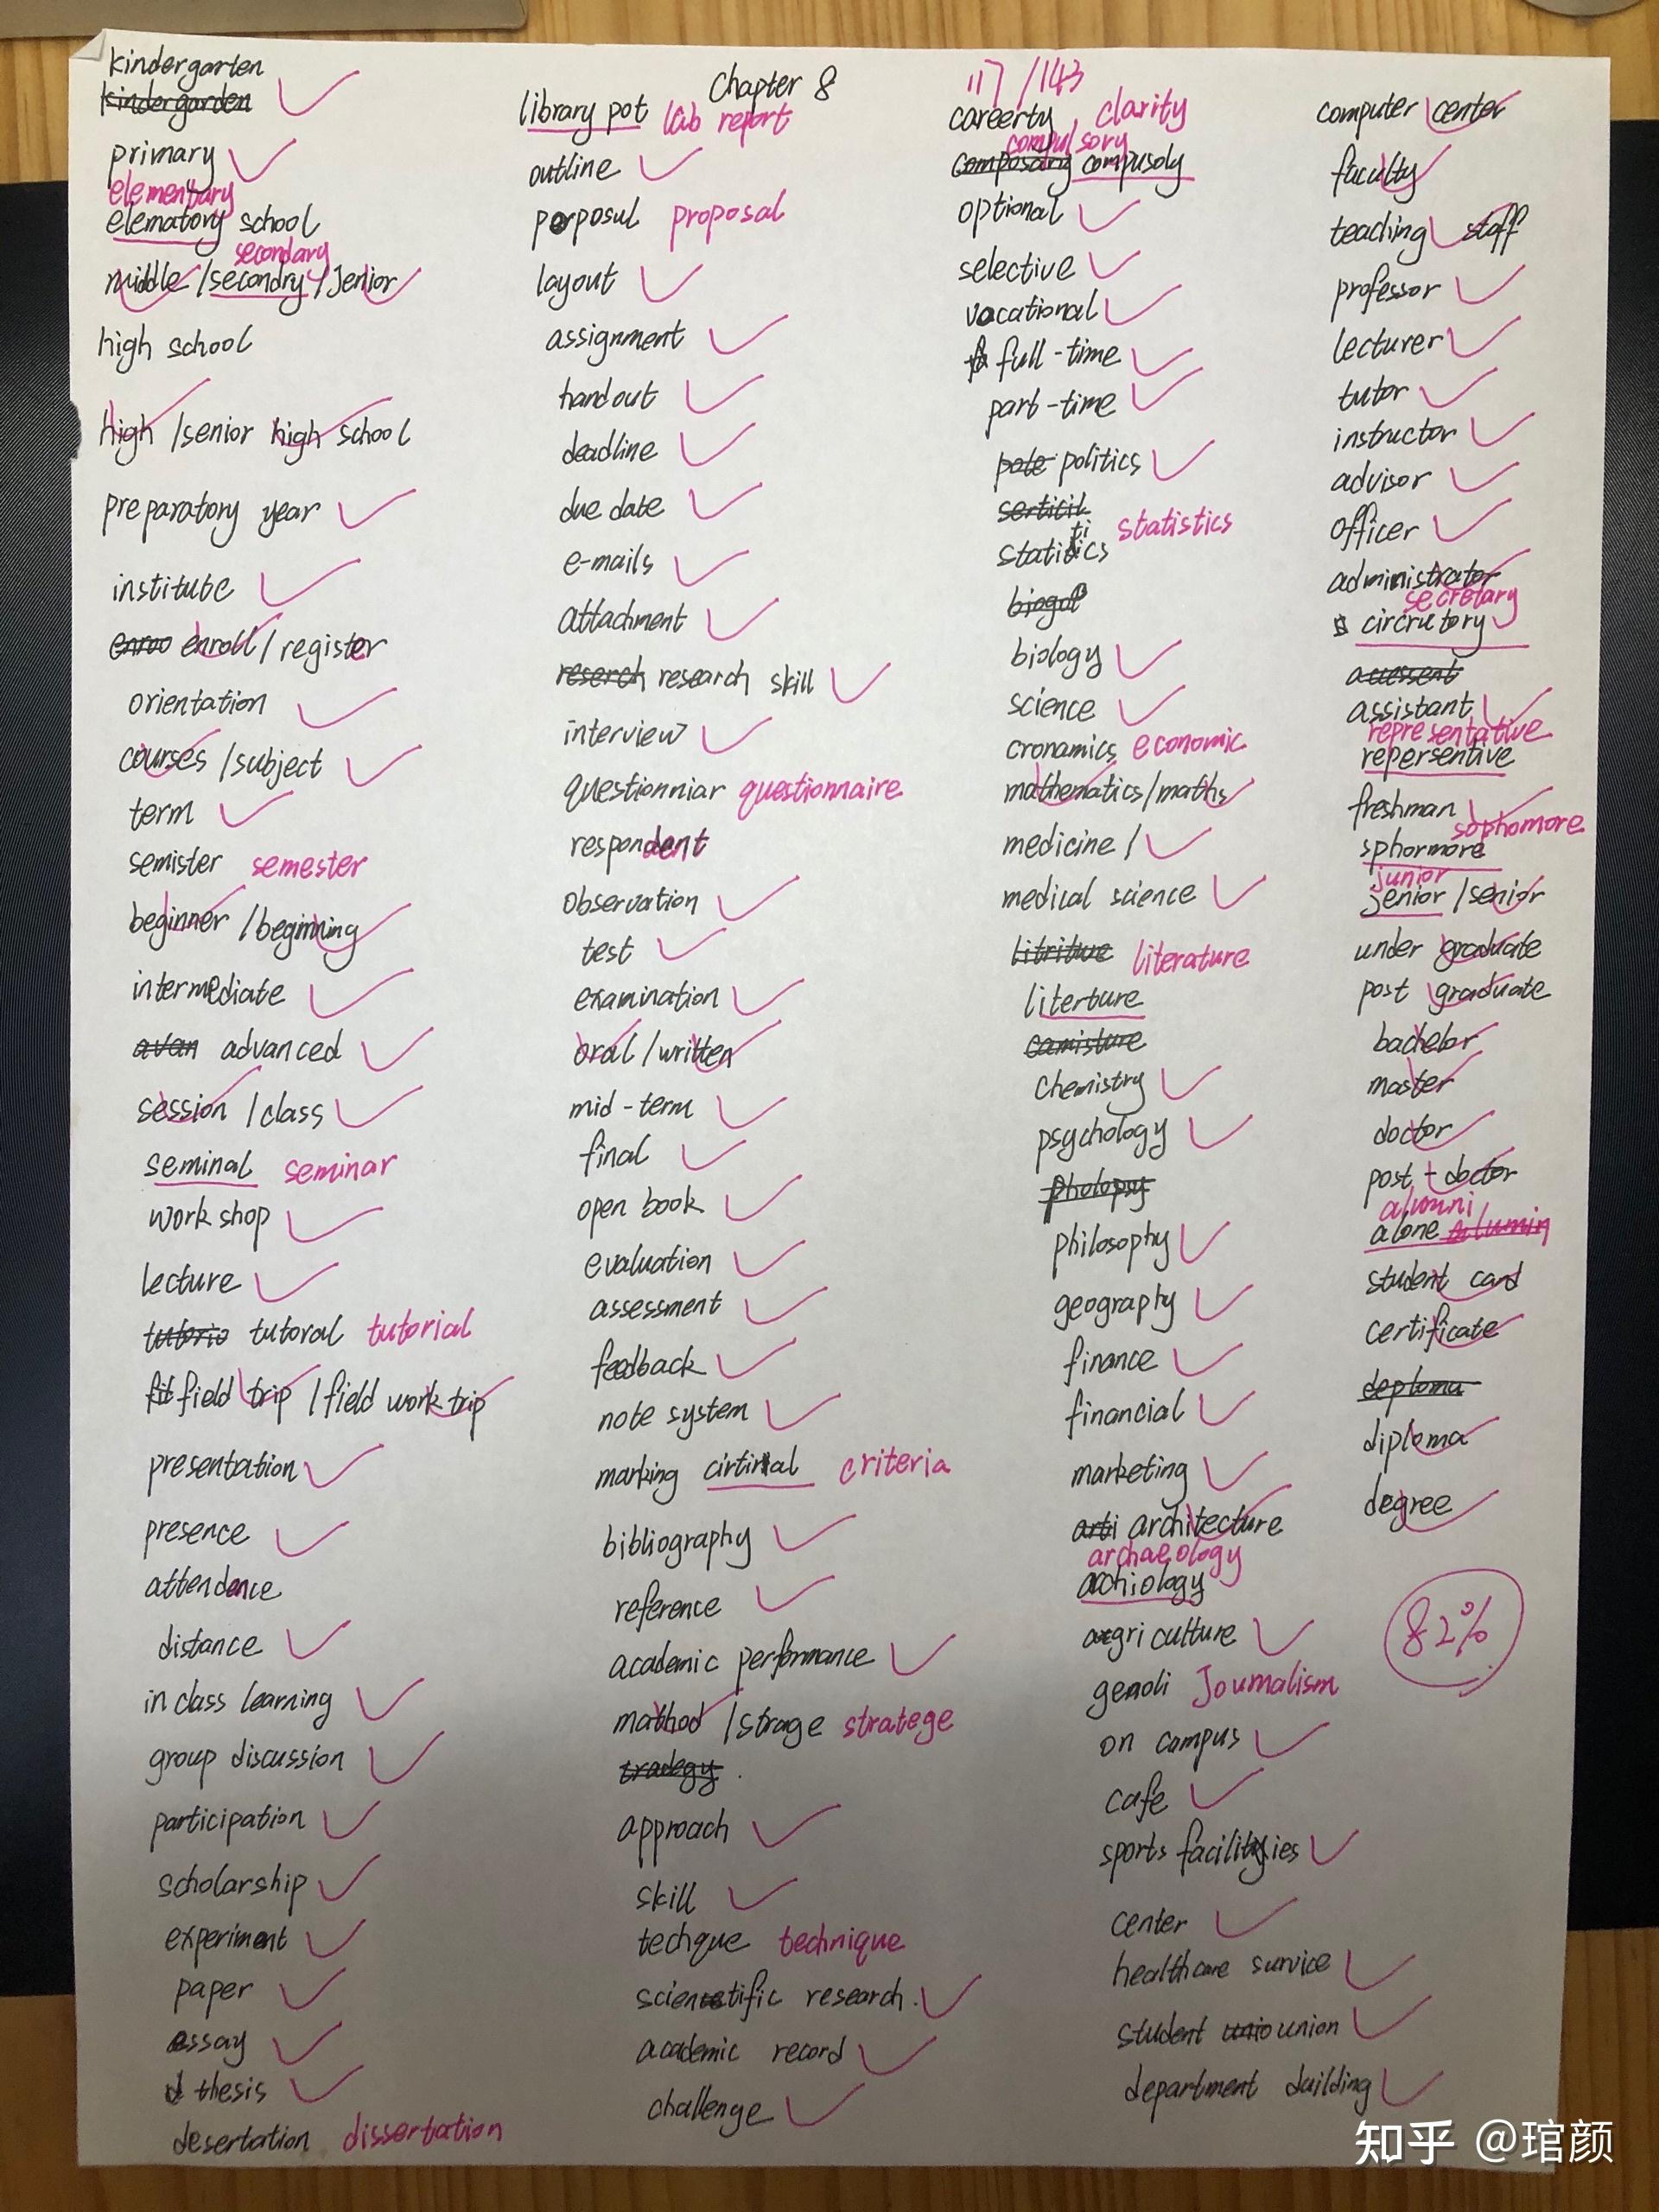 Chapter 8
117/143
kindergarten
kindergarden
primary
elementary
elematory school
secondary
middle/secondry/Jenior
high school
high/senior high school
preparatory year
institute
enroo enroll/register
orientation
courses/subject
term
semister semester
beginner/beginning
intermediate
avan advanced
session/class
seminal seminar
work shop
lecture
tutorio tutoral tutorial
field trip/field work trip
presentation
presence
attendence
distance
in class learning
group discussion
participation
scholarship
experiment
paper
essay
thesis
desertation dissertation
library pot lab report
outline
porposul proposal
layout
assignment
handout
deadline
due date
e-mails
attachment
reserch research skill
interview
questionniar questionnaire
respondent
observation
test
examination
oral/written
mid-term
final
open book
evaluation
assessment
feedback
note system
marking cirtirial criteria
bibliography
reference
academic performance
mathod/strage stratege
tradegy.
approach
skill
techque technique
scientific research.
academic record
challenge
careerty clarity
compulsory
composing compusoly
optional
selective
vocational
full-time
part-time
pole politics
serticil
statitics statistics
biogol
biology
science
cronamics economic
mathematics/maths
medicine/
medical science
litritue literature
literture
camisture
chemistry
psychology
pholopsy
philosophy
geography
finance
financial
marketing
arti architecture
archaeology
achiology
agriculture
genoli Journalism
on campus
cafe
sports facilities
center
healthcare survice
student unio union
department duilding
computer center
faculty
teaching staff
professor
lecturer
tutor
instructor
advisor
officer
administrator
secretary
circrutory
accessent
assistant
representative
repersentive
freshman
sophomore
sphormore
junior
jenior/senior
under graduate
post graduate
bachelor
master
doctor
post-doctor
alumni
alone alumin
student card
certificate
deploma
diploma
degree
82%
知乎 @琯颜